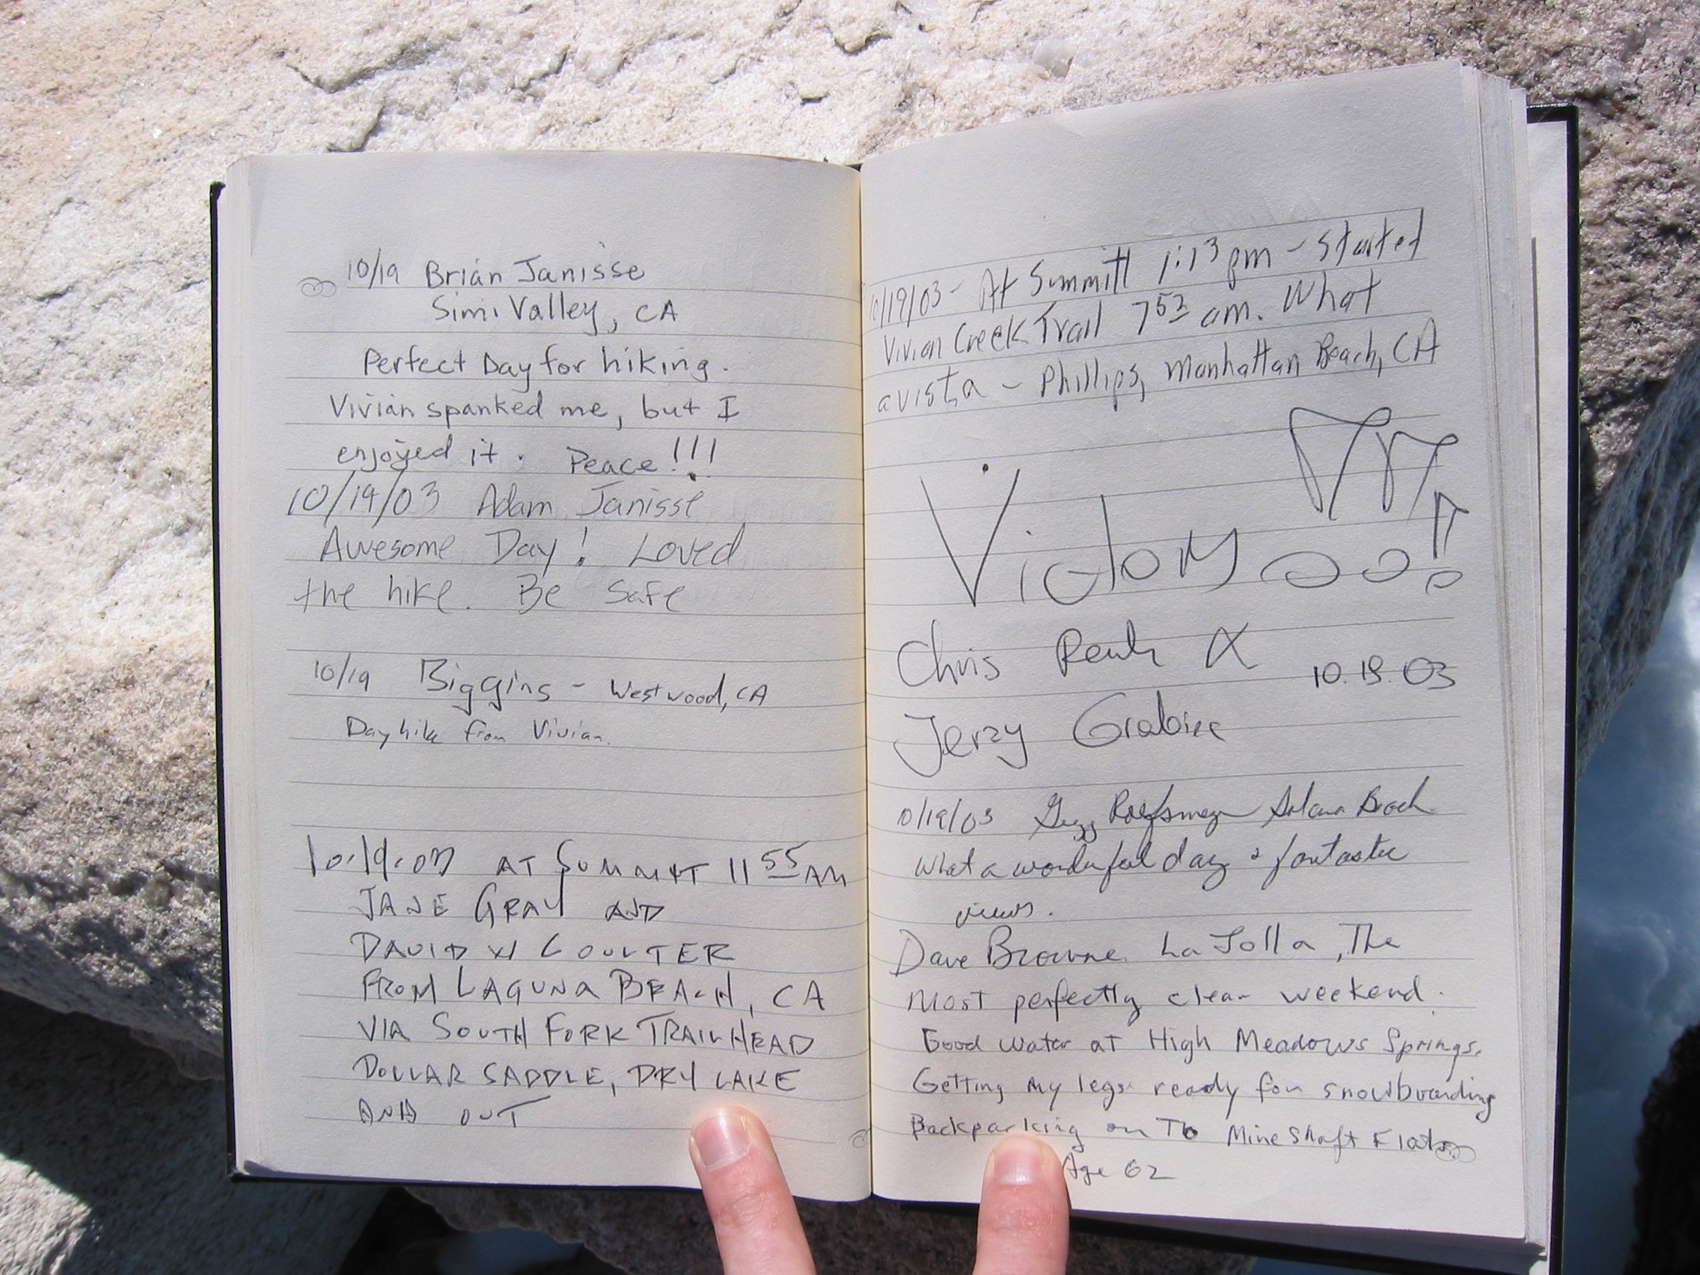 10/19 Brian Janisse
Simi Valley, CA
Perfect Day for hiking.
Vivian spanked me, but I
enjoyed it. Peace!!!
10/19/03 Adam Janisse
Awesome Day! Loved
the hike. Be safe
10/19 Biggins - Westwood, CA
Day hike from Vivian.
10.19.03 AT SUMMIT 11 55 AM
JANE GRAY AND
DAVID W COULTER
FROM LAGUNA BEACH, CA
VIA SOUTH FORK TRAILHEAD
DOLLAR SADDLE, DRY LAKE
AND OUT
10/19/03 - At Summitt 1:13 pm - Started
Vivian Creek Trail 7 53 am. What
a vista - Phillips, Manhattan Beach, CA
Victory
Chris
10.19.03
Jerzy
10/19/03 Beach
What a wonderful day & fantastic
views.
Dave Browne La Jolla, The
most perfectly clear weekend.
Good water at High Meadows Springs.
Getting my legs ready for snowboarding
Backpacking on To Mineshaft Flats
Age 62